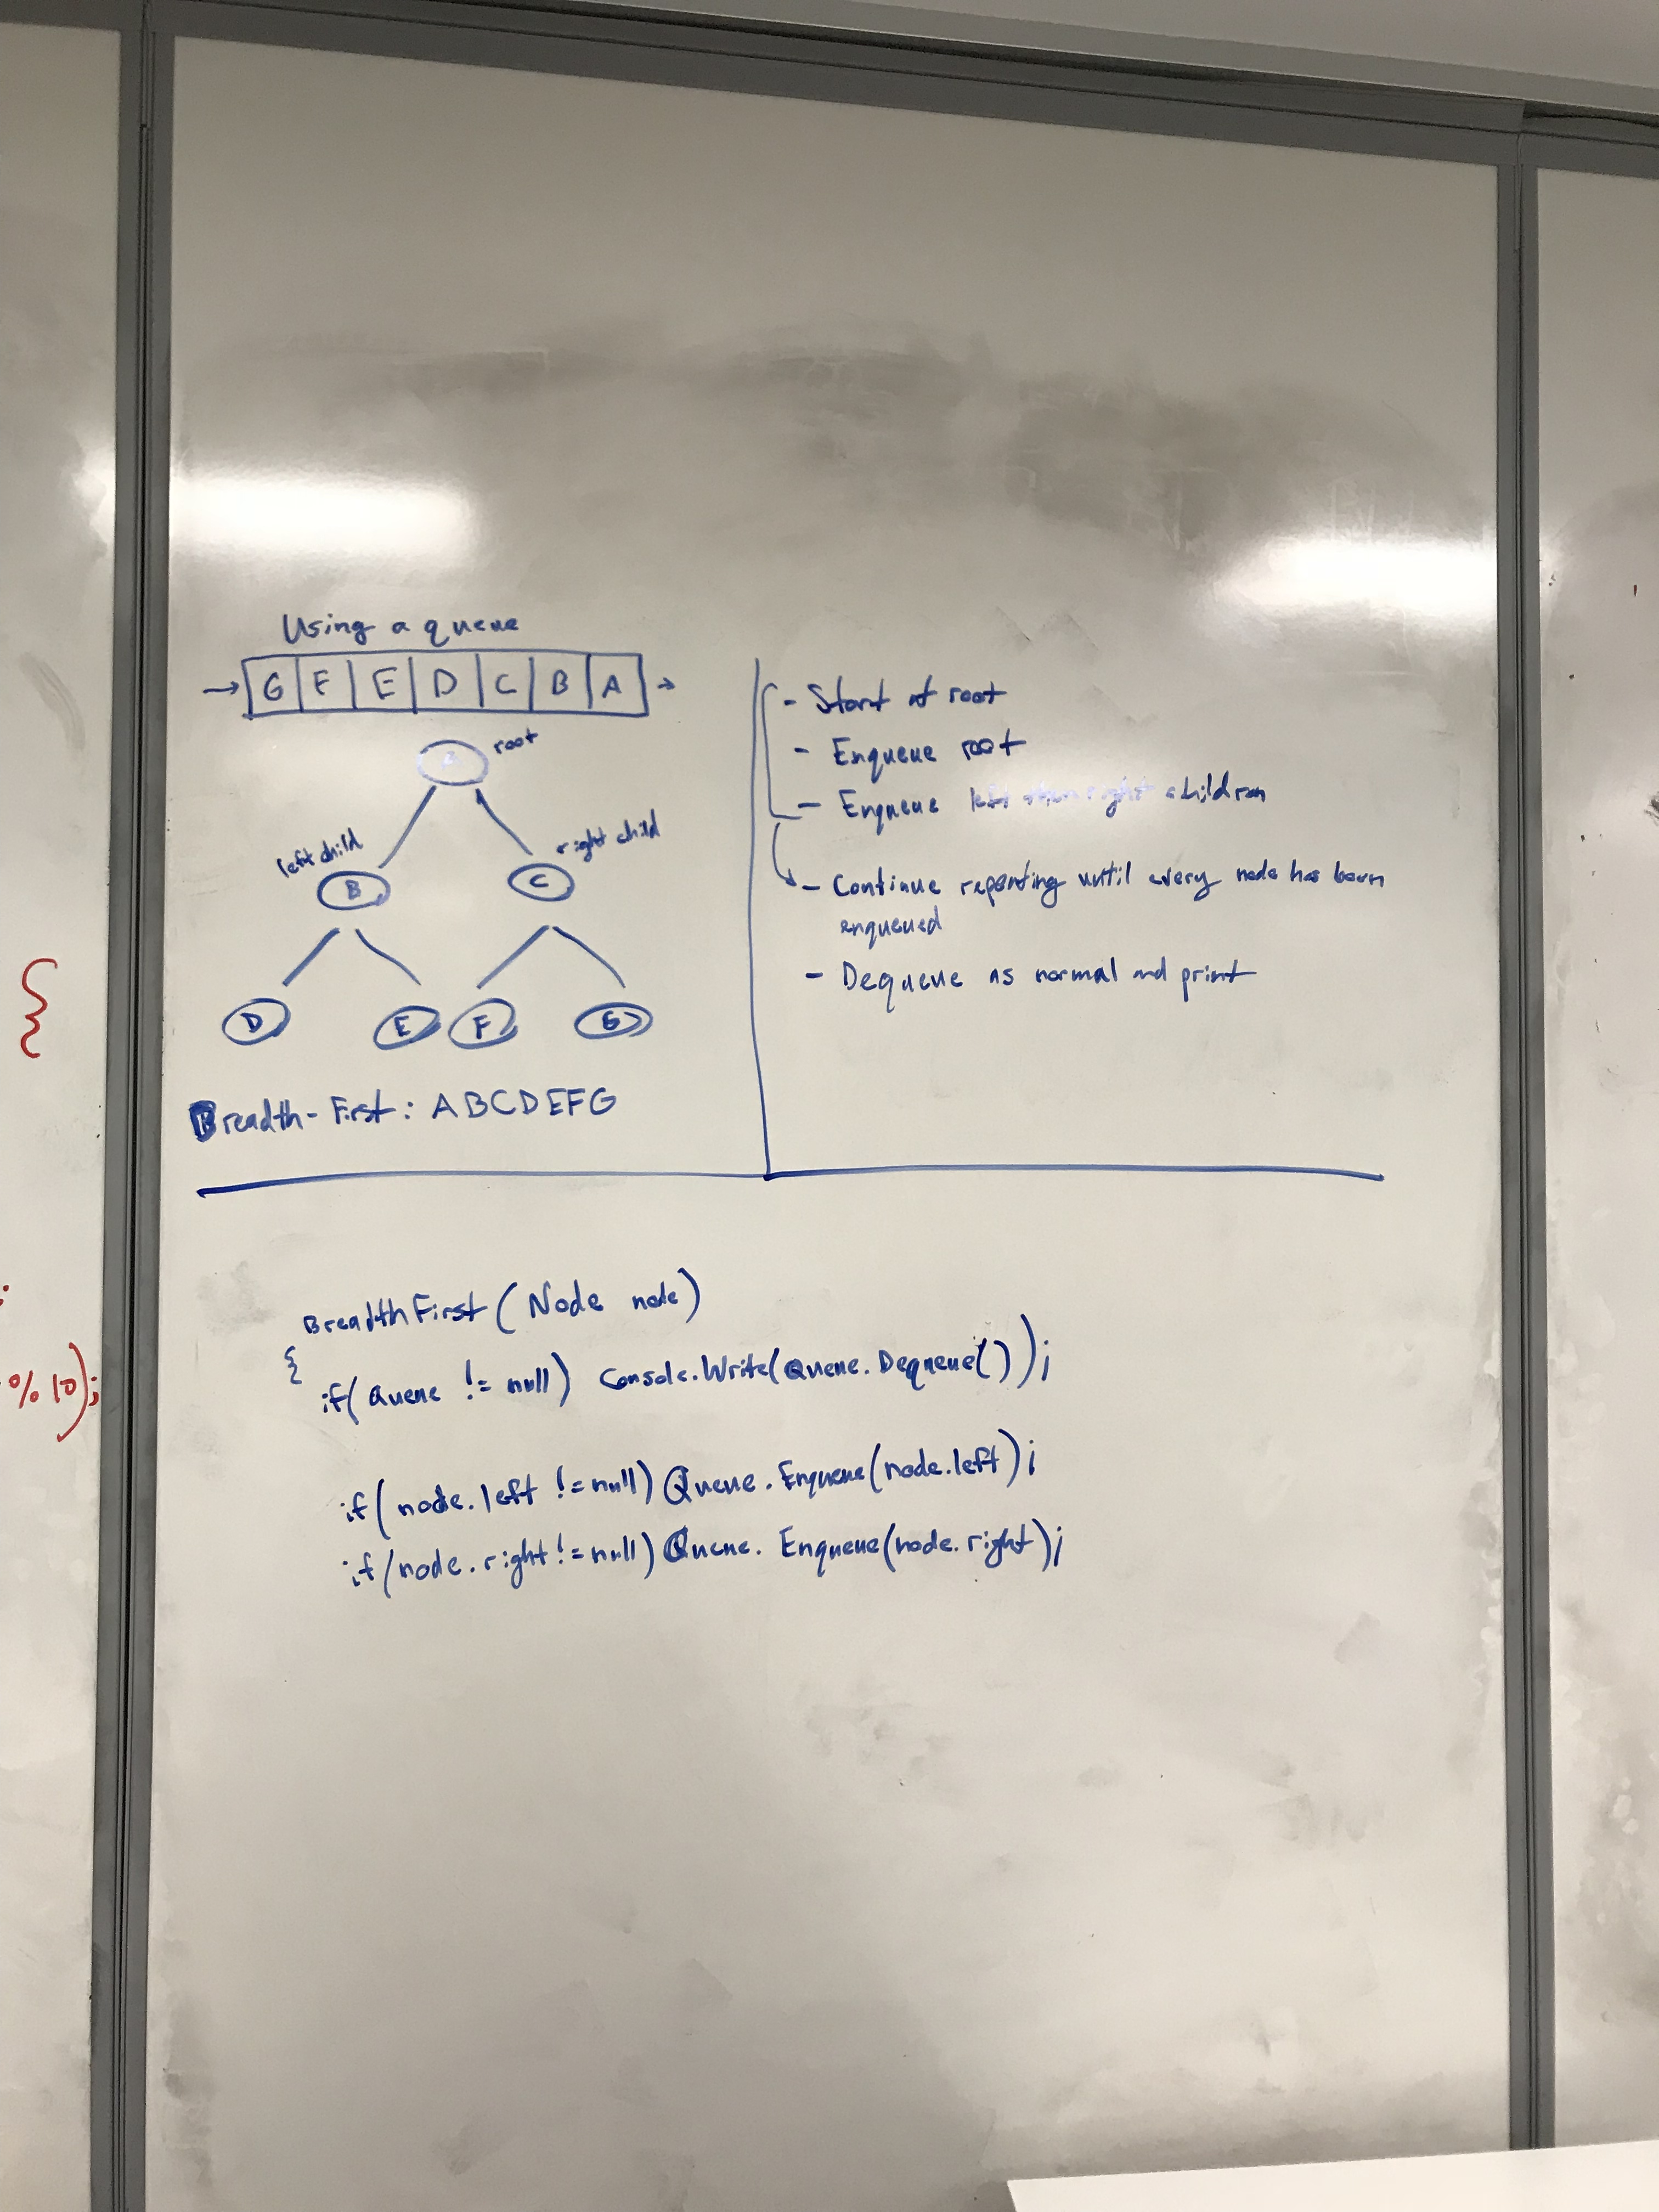 Using a queue
→ G F E D C B A →
A root
left child right child
B C
D E F G
Breadth-First: ABCDEFG
- Start at root
- Enqueue root
- Enqueue left then right children
- Continue repeating until every node has been
enqueued
- Dequeue as normal and print
BreadthFirst(Node node)
{
if(Queue != null) Console.Write(Queue.Dequeue());
if(node.left != null) Queue.Enqueue(node.left);
if(node.right != null) Queue. Enqueue(node.right);
}
;
% 10);